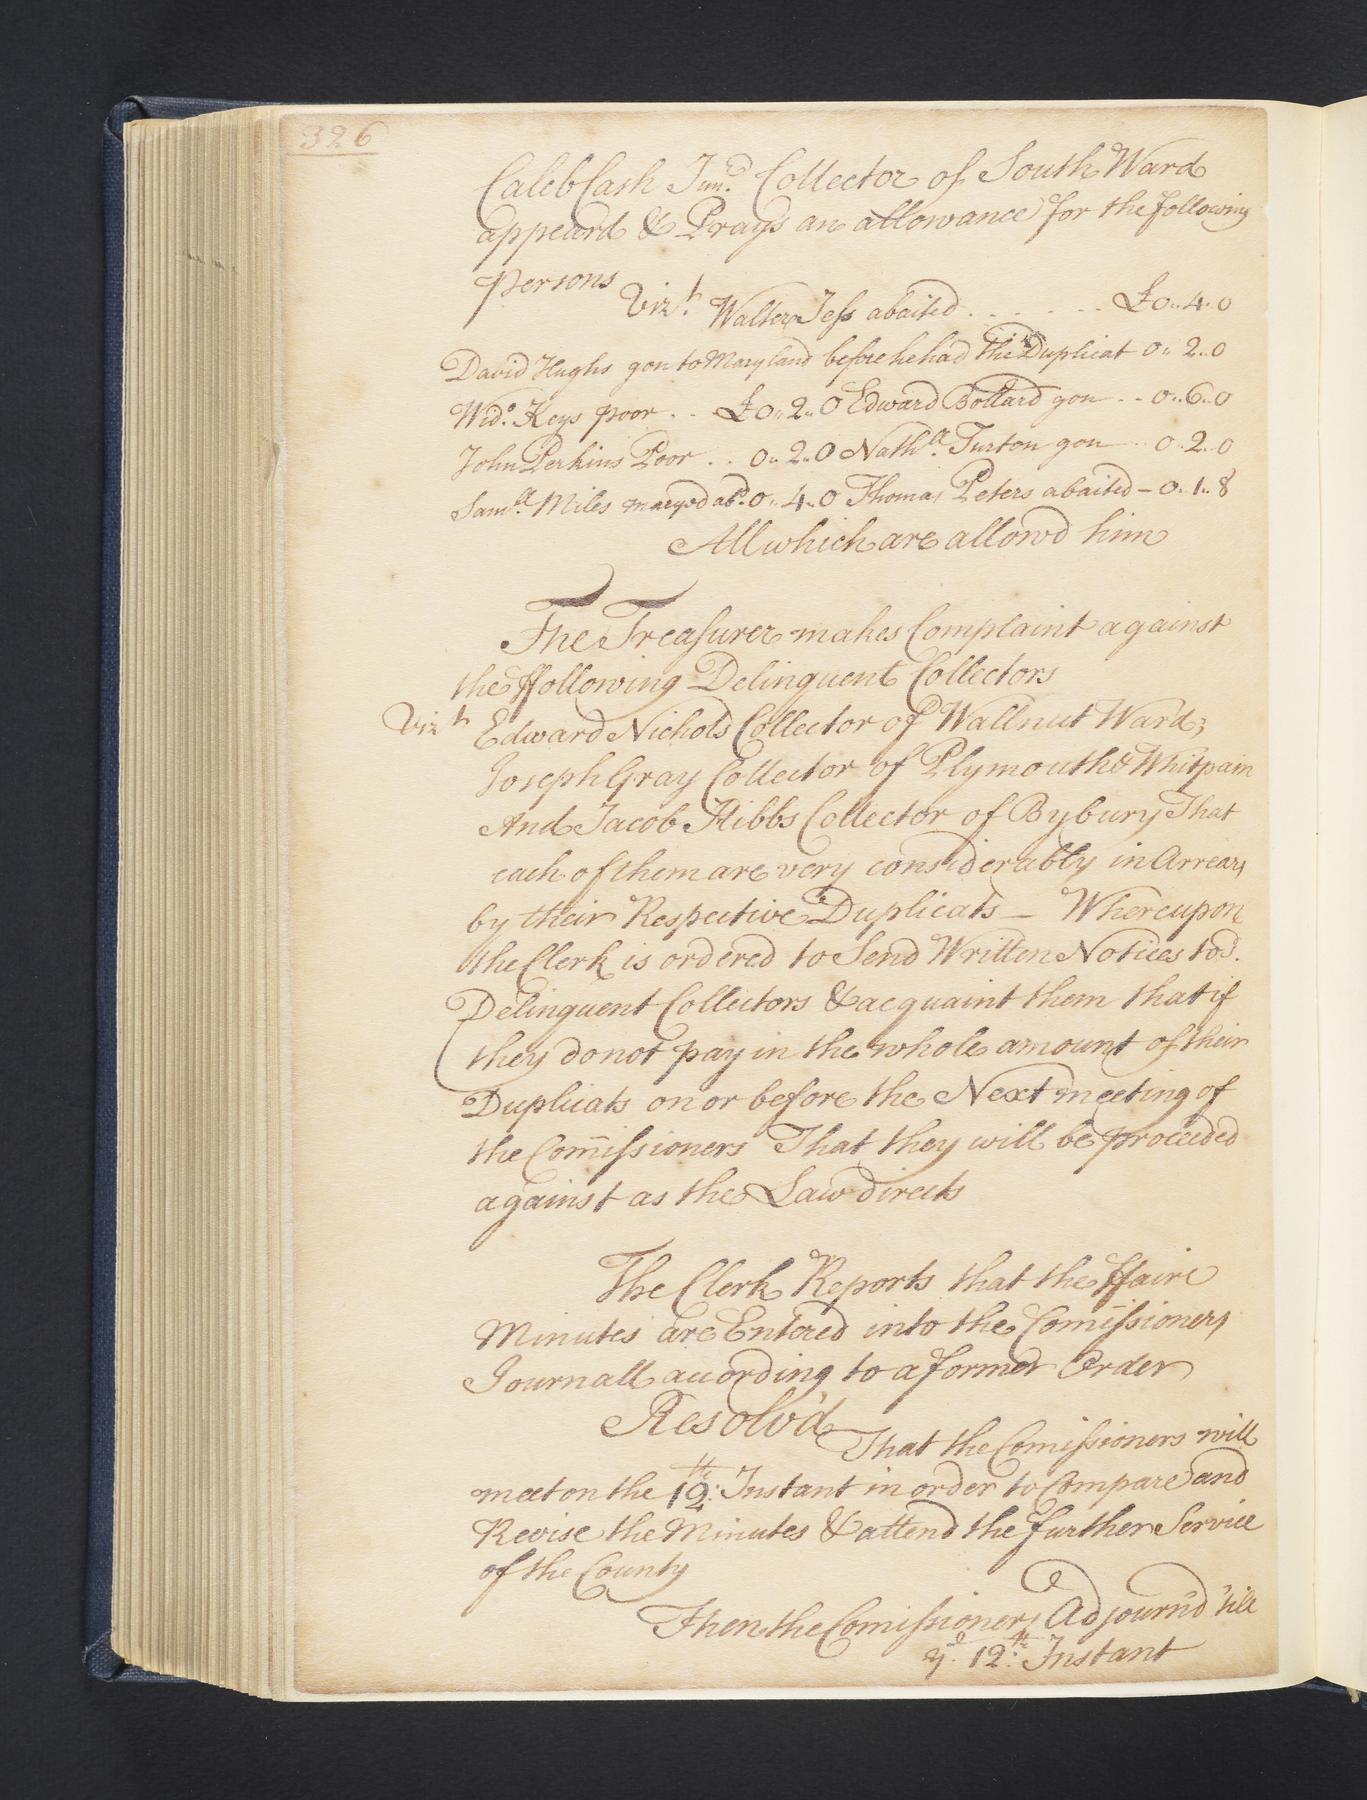 326
Caleb Cash Junr. Collector of South Ward
appeard & Prays an allowance for the following
Persons Vizt. Walter Jess abaited . . . . . . £0..4..0
David Hughs gon to Maryland before he had the Duplicat 0..2..0
Wido. Keys poor . . £0..2..0 Edward Bollard gon . . 0..6..0
John Perkins Poor . . 0..2..0 Nathll. Turton gon . . 0..2..0
Samll. Miles abd. 0..4..0 Thomas Peters abaited – 0..1..8
All which are allow'd him
The Treasurer makes Complaint against
the ffollowing Delinquent Collectors
Vizt Edward Nichols Collector of Wallnut Ward;
Joseph Gray Collector of Plymouth & Whitpain
And Jacob Hibbs Collector of Bybury That
each of them are very considerably in Arrears
by their Respective Duplicats – Whereupon
the Clerk is ordered to Send Written Notices to sd.
Delinquent Collectors & acquaint them that if
they do not pay in the whole amount of their
Duplicats on or before the Next meeting of
the Com̅issioners That they will be proceeded
against as the Law directs
The Clerk Reports that the ffaire
Minutes are Entered into the Com̅issioners
Journall acording to a former Order
Resolv'd
That the Comissioners will
meet on the 12th: Instant in order to Compare and
Revise the Minutes & attend the further Service
of the County
Then the Comissioners Adjourn'd 'till
ye. 12th: Instant